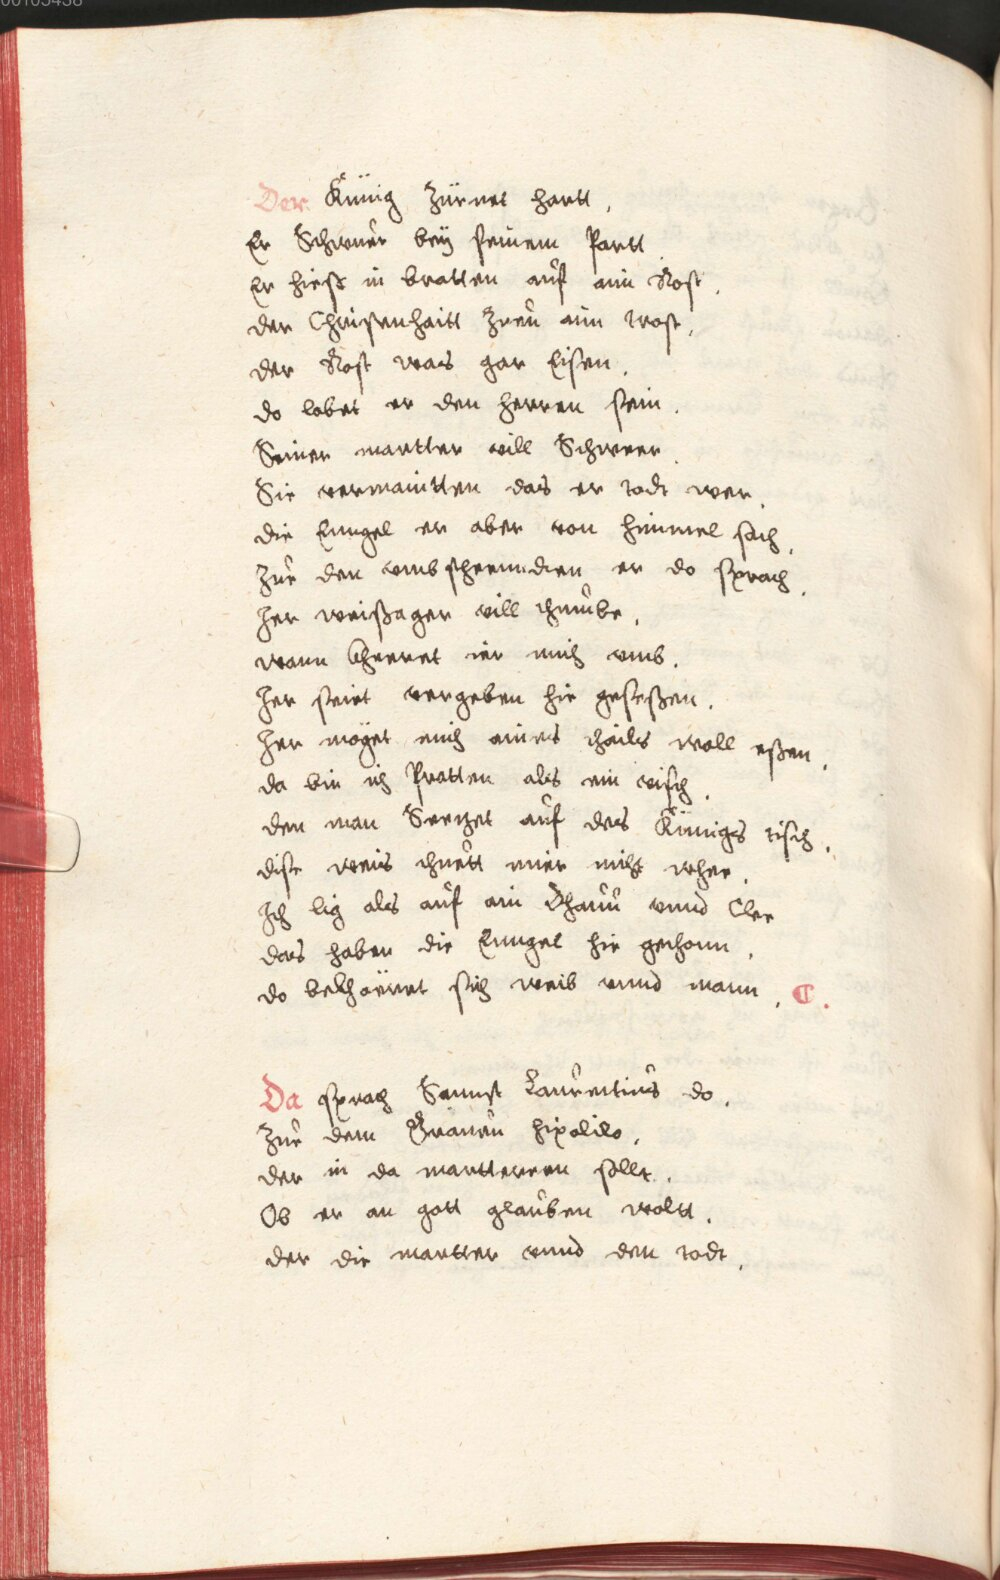 00105458
Der Künig Zürnet hartt,
Er Schwuer bey seinem Partt
Er hieß in bratten auf ain Rost,
der Christenhaitt Zreu ain trost,
der Rost was gar Eisen,
do lobet er den herren sein,
Seiner martter vill Schweer,
Sie vermaintten das er todt wer,
die Enngel er aber von himmel sach,
Zue den umbsteenndien er do sprach,
Jer weißager vill thumbe,
wann kheeret ier mich umb,
Jer seiet vergeben hie geseßen,
Jer möget mich aines thails woll eßen,
da bin ich Pratten als ein visch,
den man Seczet auf des Künigs tisch,
dise weis thuett mier nicht whee,
Ich lig als auf ain thauu unnd Clee
das haben die Enngel hie gethonn,
do bekhöeret sich weib unnd mann,
Da sprach Sannst Laurentius do,
Zue dem Grauen hipolito,
der in da martteren sollt,
Ob er an gott glauben woltt,
der die martter unnd den todt,